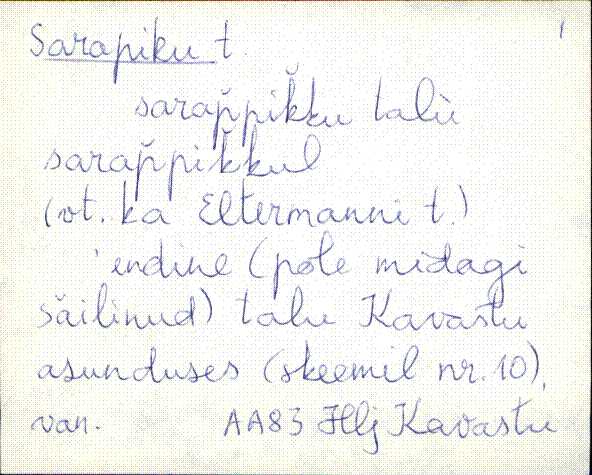 Sarapiku t. 1
sarap̆pik̆ku talù
sarap̆pik̆kul
(vt. ka Eltermanni t.)
'endine (pole midagi
säilinud) talu Kavastu
asunduses (skeemil nr. 10),
van. AA83 Hlj Kavastu